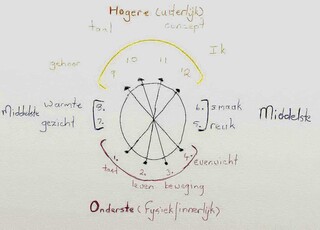 Hogere (uiterlijk)
taal concept
gehoor Ik
9 10 11 12
Middelste warmte 8. 6. smaak Middelste
gezicht 7. 5. reuk
1. 2. 3. 4. evenwicht
tast
leven beweging
Onderste (fysiek/innerlijk)